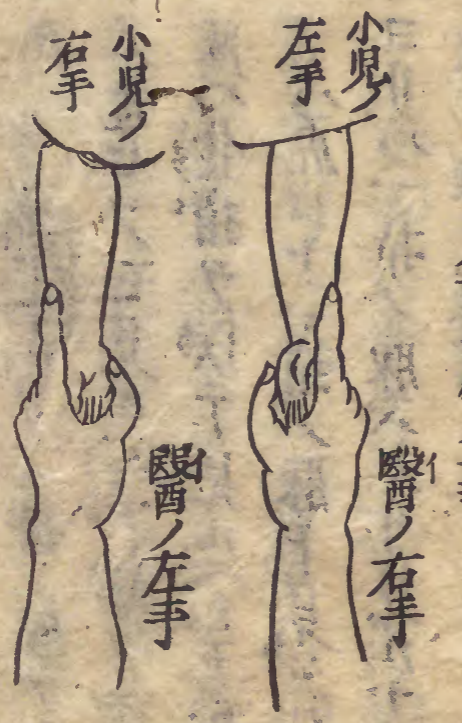 小児ノ
左手
醫イノ右手
小児ノ
右手
醫イノ左手